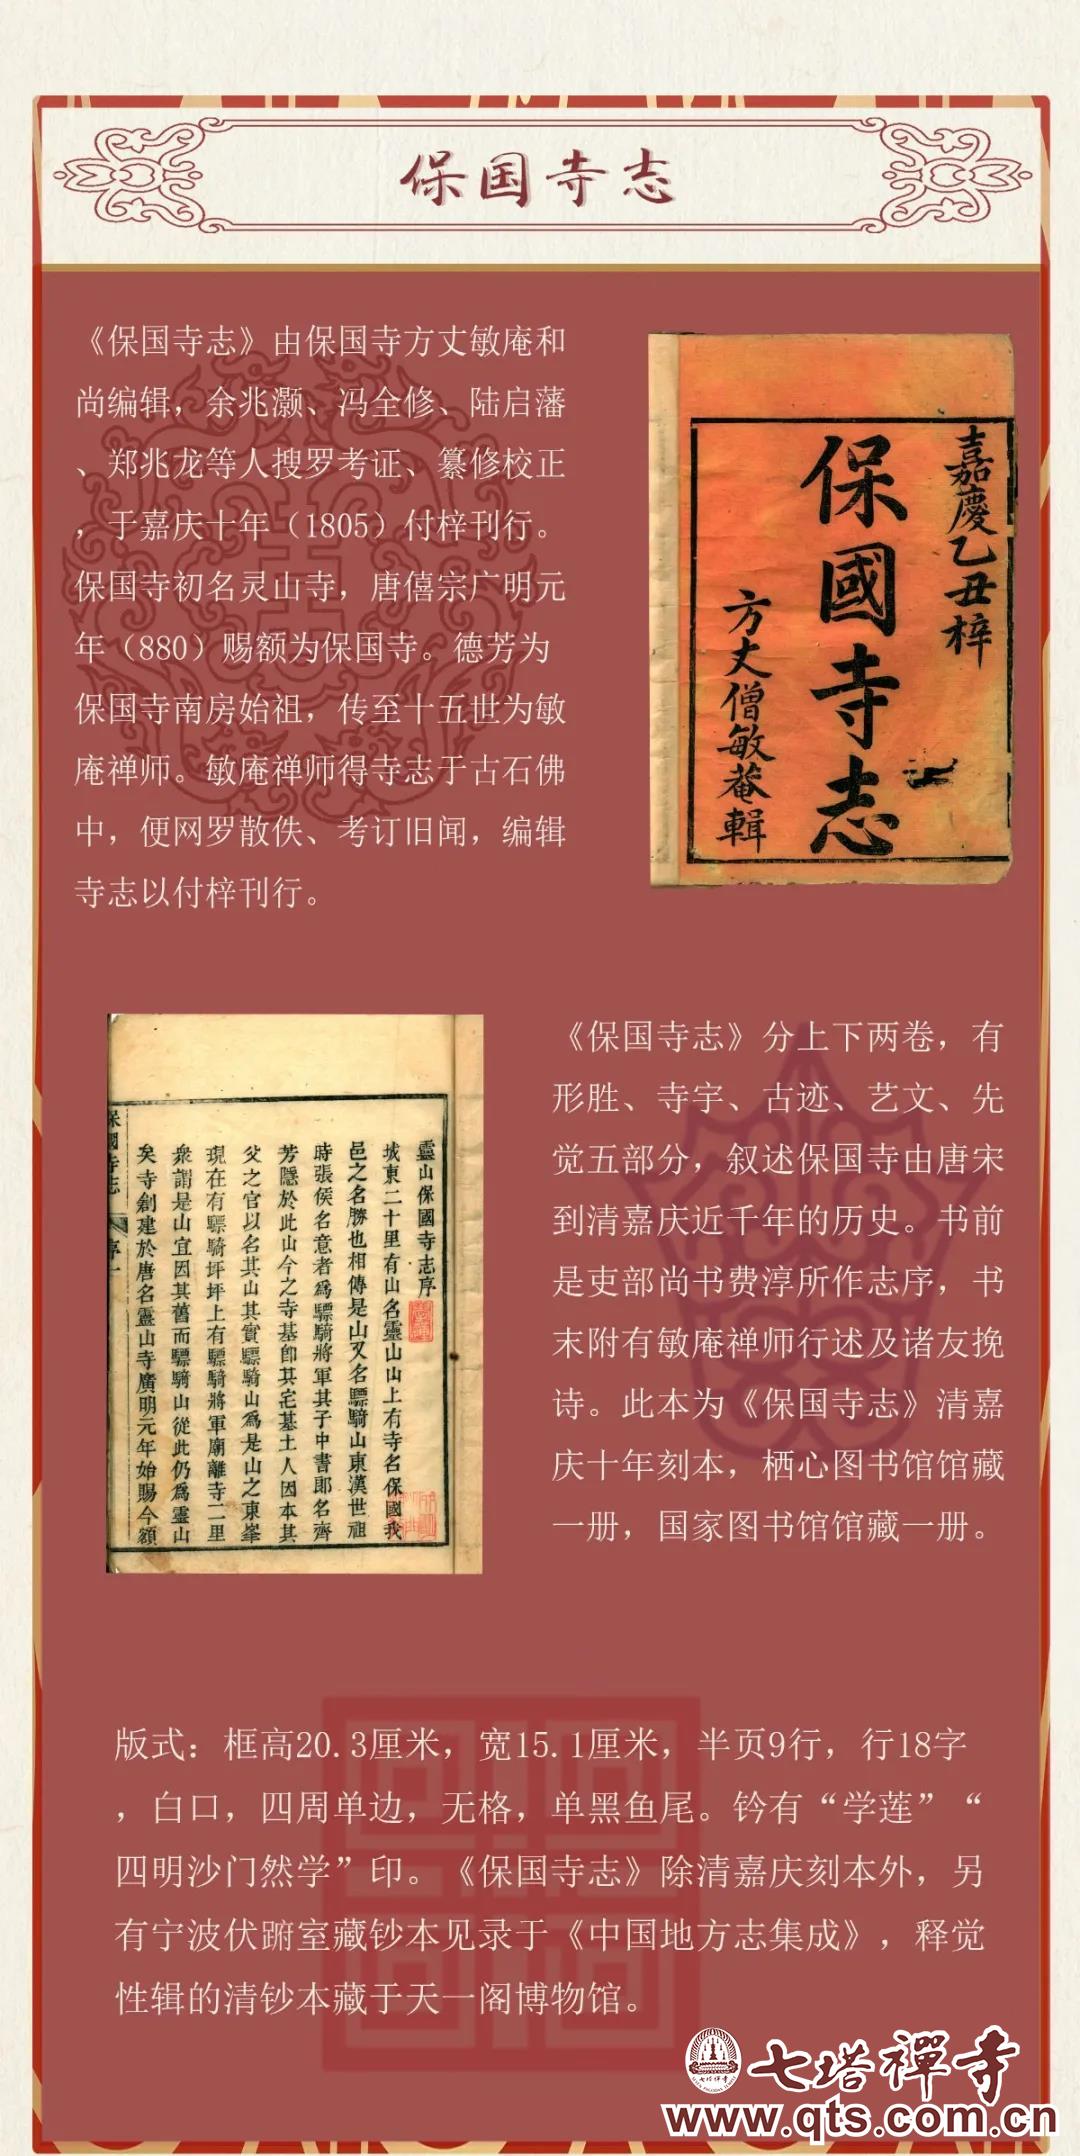 保国寺志
《保国寺志》由保国寺方丈敏庵和
尚编辑，余兆灏、冯全修、陆启藩
、郑兆龙等人搜罗考证、纂修校正
，于嘉庆十年（1805）付梓刊行。
保国寺初名灵山寺，唐僖宗广明元
年（880）赐额为保国寺。德芳为
保国寺南房始祖，传至十五世为敏
庵禅师。敏庵禅师得寺志于古石佛
中，便网罗散佚、考订旧闻，编辑
寺志以付梓刊行。
嘉慶乙丑梓
保國寺志
方丈僧敏菴輯
靈山保國寺志序
城東二十里有山名靈山山上有寺名保國我
邑之名勝也相傳是山又名驃騎山東漢世祖
時張侯名意者為驃騎將軍其子中書郎名齊
芳隱於此山今之寺基即其宅基土人因本其
父之官以名其山其實驃騎山為是山之東峯
現在有驃騎坪坪上有驃騎將軍廟離寺二里
衆謂是山宜因其舊而驃騎山從此仍為靈山
矣寺創建於唐名靈山寺廣明元年始賜今額
保國寺志
序一
《保国寺志》分上下两卷，有
形胜、寺宇、古迹、艺文、先
觉五部分，叙述保国寺由唐宋
到清嘉庆近千年的历史。书前
是吏部尚书费淳所作志序，书
末附有敏庵禅师行述及诸友挽
诗。此本为《保国寺志》清嘉
庆十年刻本，栖心图书馆馆藏
一册，国家图书馆馆藏一册。
版式：框高20.3厘米，宽15.1厘米，半页9行，行18字
，白口，四周单边，无格，单黑鱼尾。钤有“学莲”“
四明沙门然学”印。《保国寺志》除清嘉庆刻本外，另
有宁波伏跗室藏钞本见录于《中国地方志集成》，释觉
性辑的清钞本藏于天一阁博物馆。
七塔禪寺
www.qts.com.cn